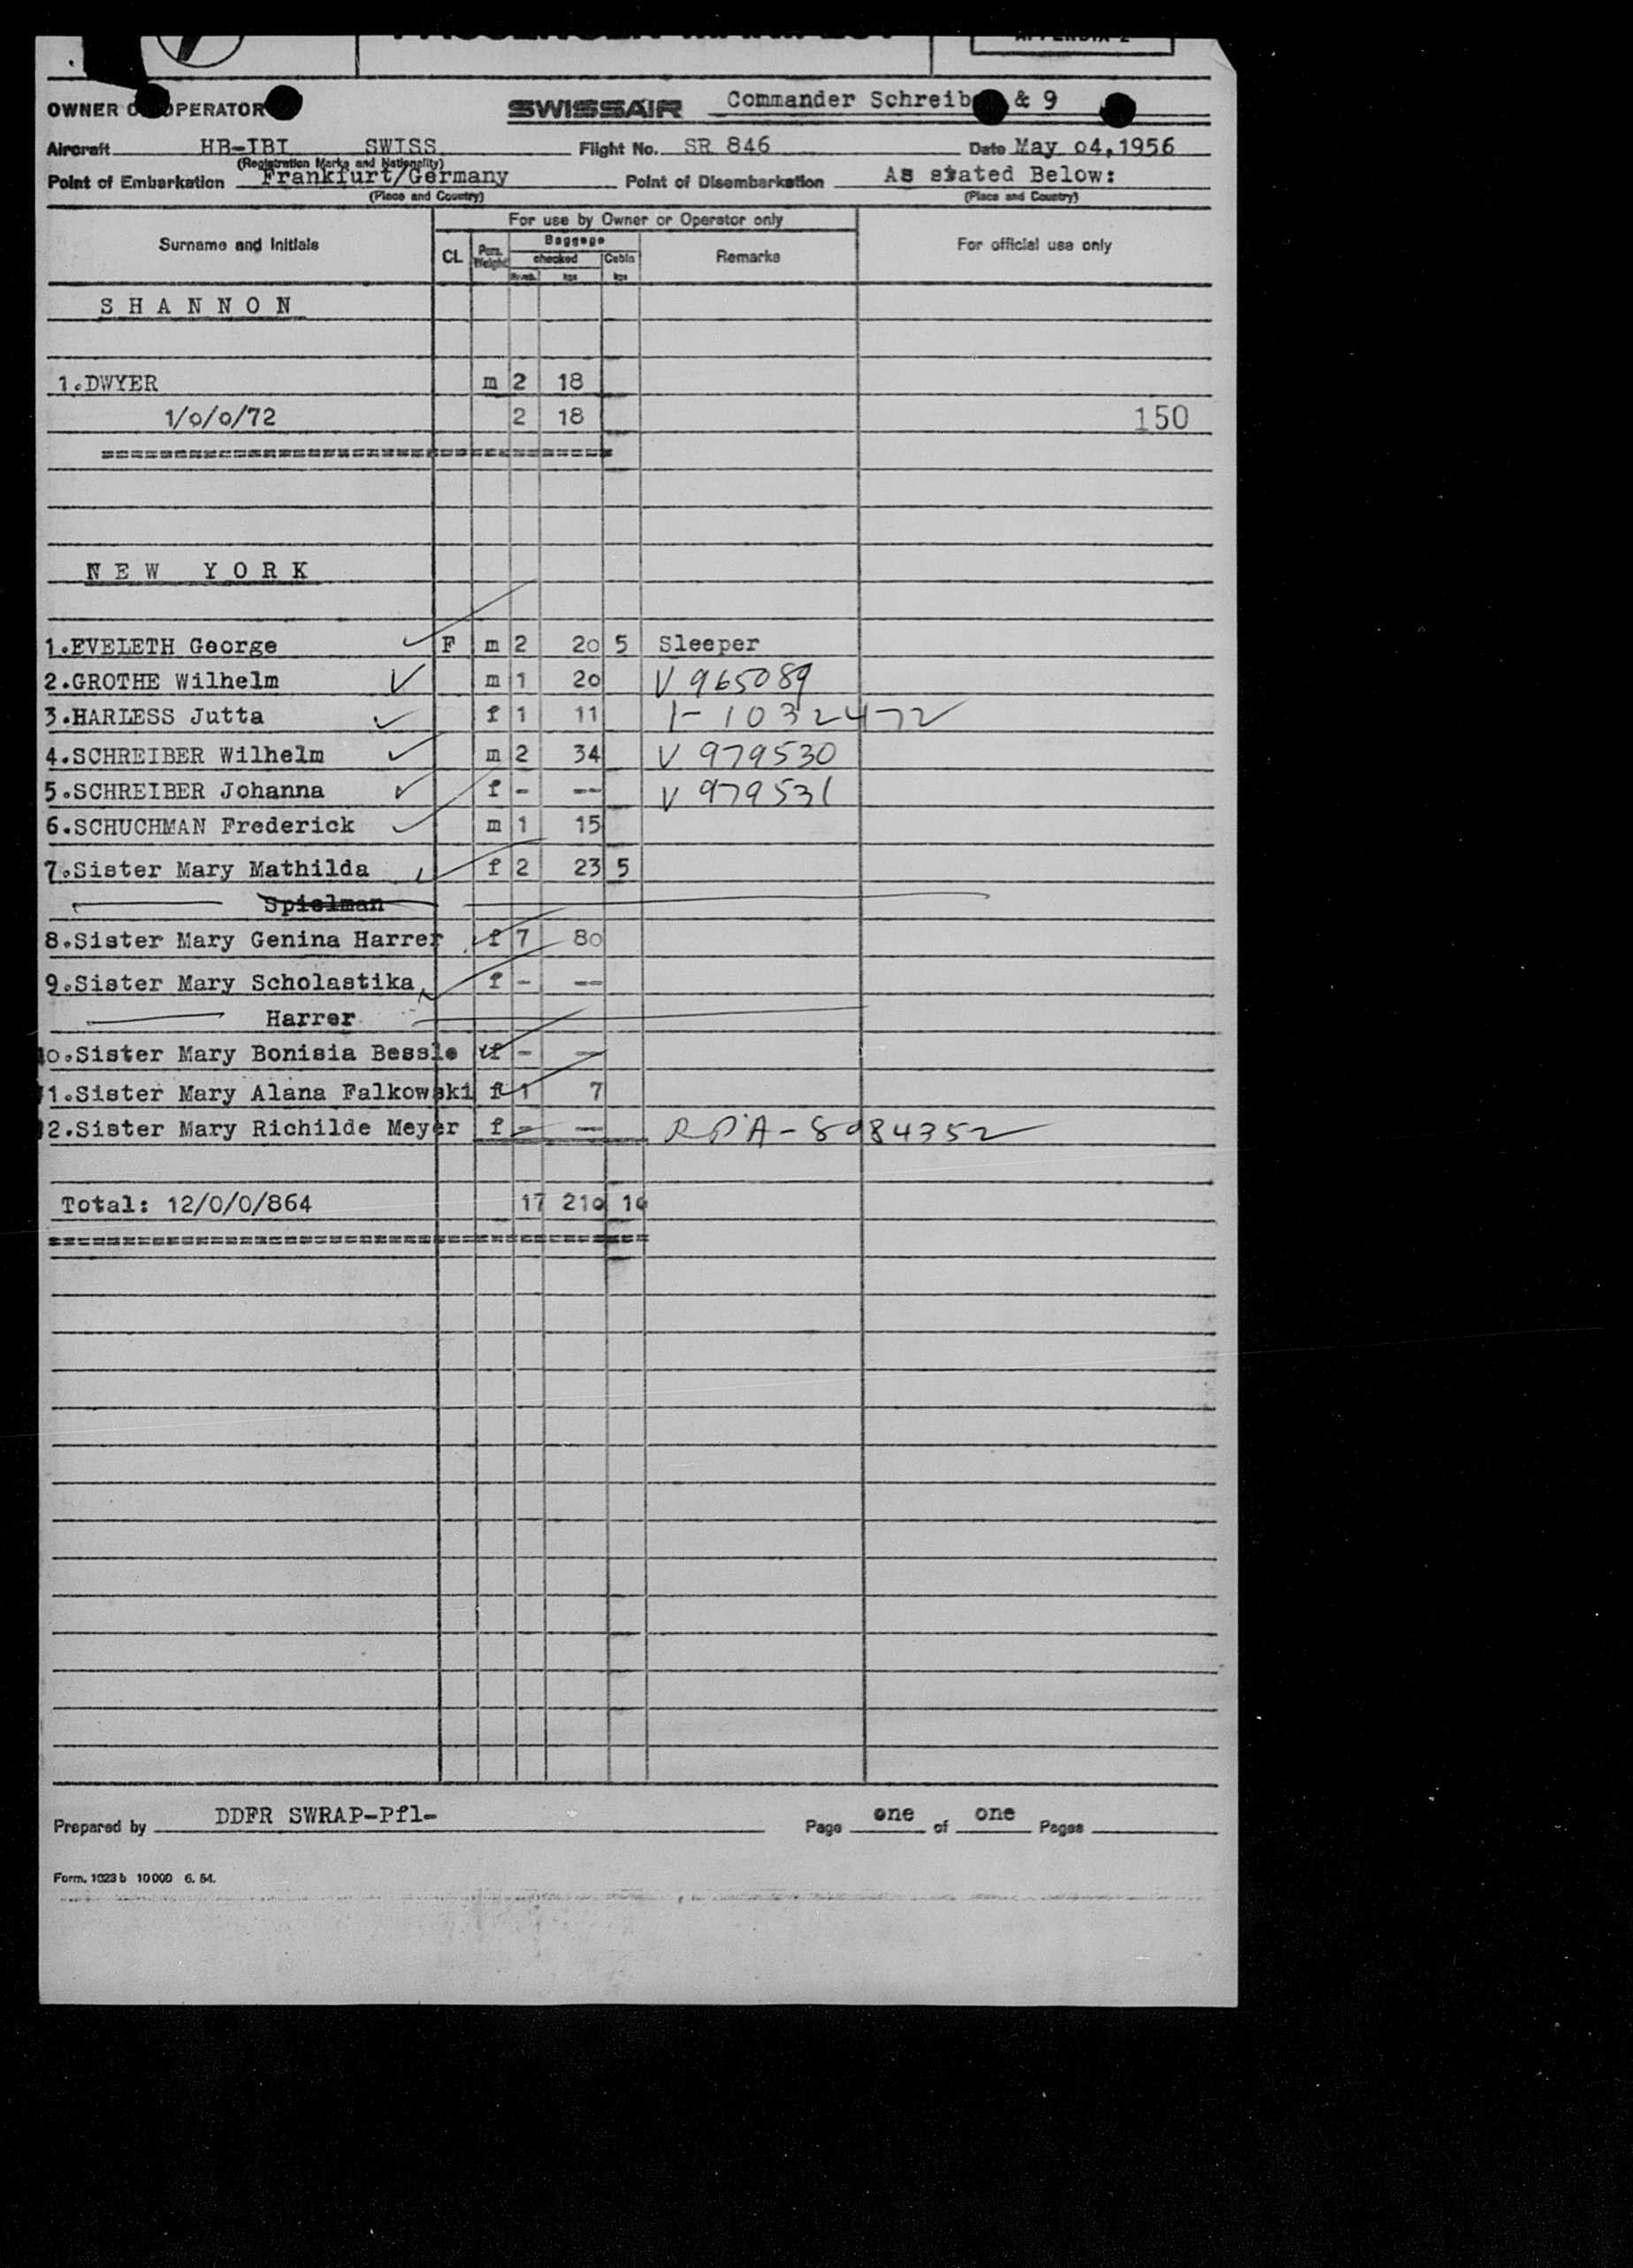 PASSENGER MANIFEST
APPENDIX 2
OWNER OR OPERATOR SWISSAIR Commander Schreib & 9
Aircraft HB-IBI SWISS Flight No. SR 846 Date May 04,1956
(Registration Marks and Nationality)
Point of Embarkation Frankfurt/Germany Point of Disembarkation As stated Below:
(Place and Country) (Place and Country)
For use by Owner or Operator only
Surname and Initials CL Pers. Weight Baggage Remarks For official use only
checked Cabin
Numb. kgs kgs
SHANNON
1.DWYER m 2 18
1/0/0/72 2 18 150
NEW YORK
1.EVELETH George F m 2 20 5 Sleeper
2.GROTHE Wilhelm m 1 20 V 965089
3.HARLESS Jutta f 1 11 I-1032472
4.SCHREIBER Wilhelm m 2 34 V 979530
5.SCHREIBER Johanna f - -- V 979531
6.SCHUCHMAN Frederick m 1 15
7.Sister Mary Mathilda f 2 23 5
Spielman
8.Sister Mary Genina Harrer f 7 80
9.Sister Mary Scholastika f - --
Harrer
10.Sister Mary Bonisia Bessle f - --
11.Sister Mary Alana Falkowski f 1 7
12.Sister Mary Richilde Meyer f - -- A-8984352
Total: 12/0/0/864 17 210 10
Prepared by DDFR SWRAP-Pfl- Page one of one Pages
Form. 1023 b 10000 6. 54.